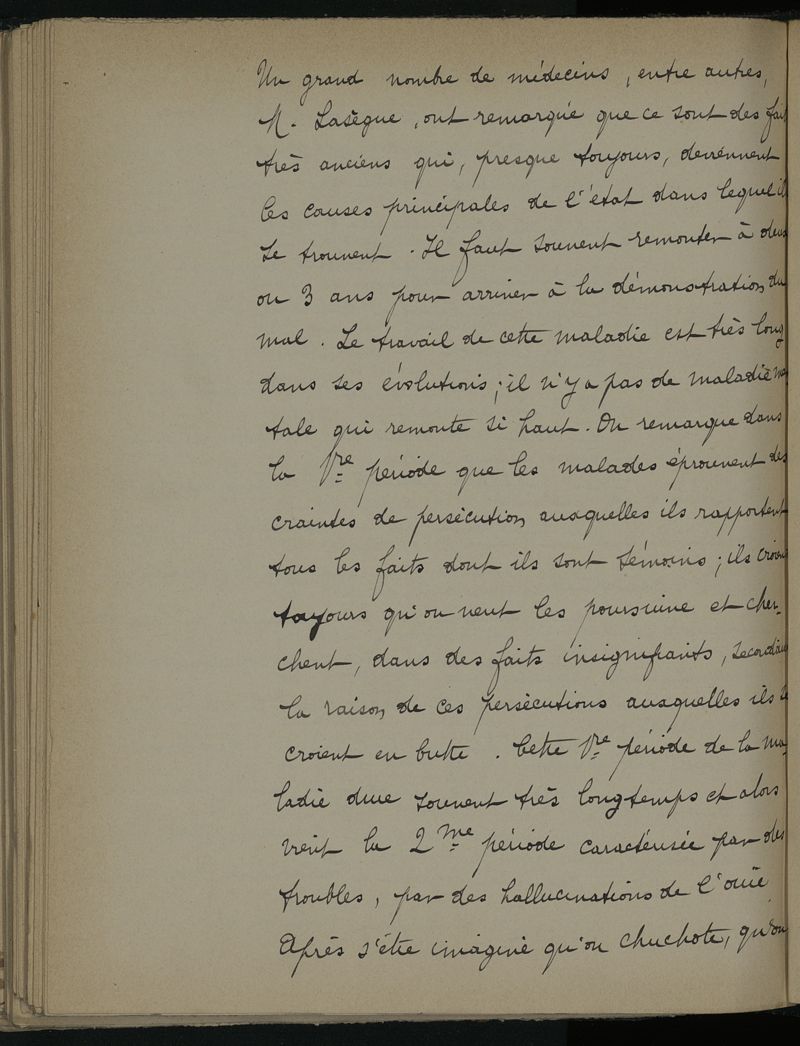 Un grand nombre de médecins, entre autres,
M. Lasègue, ont remarqué que ce sont des fait
très anciens qui, presque toujours, deviennent
les causes principales de l'état dans lequel il
se trouvent. Il faut souvent remonter à deux
ou 3 ans pour arriver à la démonstration du
mal. Le travail de cette maladie est très long
dans ses évolutions; il n'y a pas de maladie men
tale qui remonte si haut. On remarque dans
la 1re période que les malades éprouvent des
craintes de persécution auxquelles ils rapportent
tous les faits dont ils sont témoins; ils croient
toujours qu'on veut les poursuivre et cher-
chent, dans des faits insignifiants, secondaires
la raison de ces persécutions auxquelles ils se
croient en butte. Cette 1re période de la ma-
ladie dure souvent très longtemps et alors
vient la 2me période caractérisée par des
troubles, par des hallucinations de l'ouïe.
Après s'être imaginé qu'on chuchote, qu'on